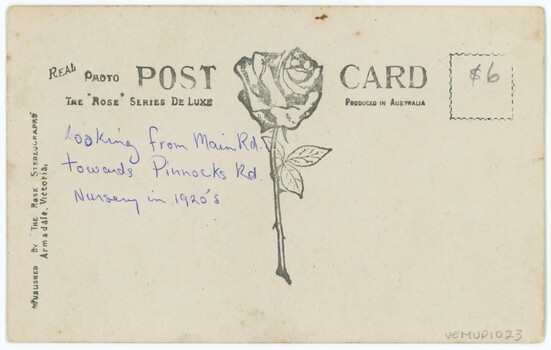 REAL PHOTO POST CARD
THE "ROSE" SERIES DE LUXE
PRODUCED IN AUSTRALIA
$6
Looking from Main Rd.
towards Pinnocks Rd.
Nursery in 1920's
PUBLISHED BY THE ROSE STEREOGRAPHS
ARMADALE, VICTORIA.
VEMUP1023